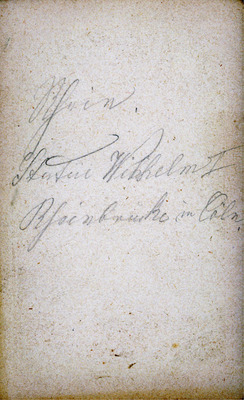 Rhein.
Statue Wilhelm I
Rheinbrücke in Cöln